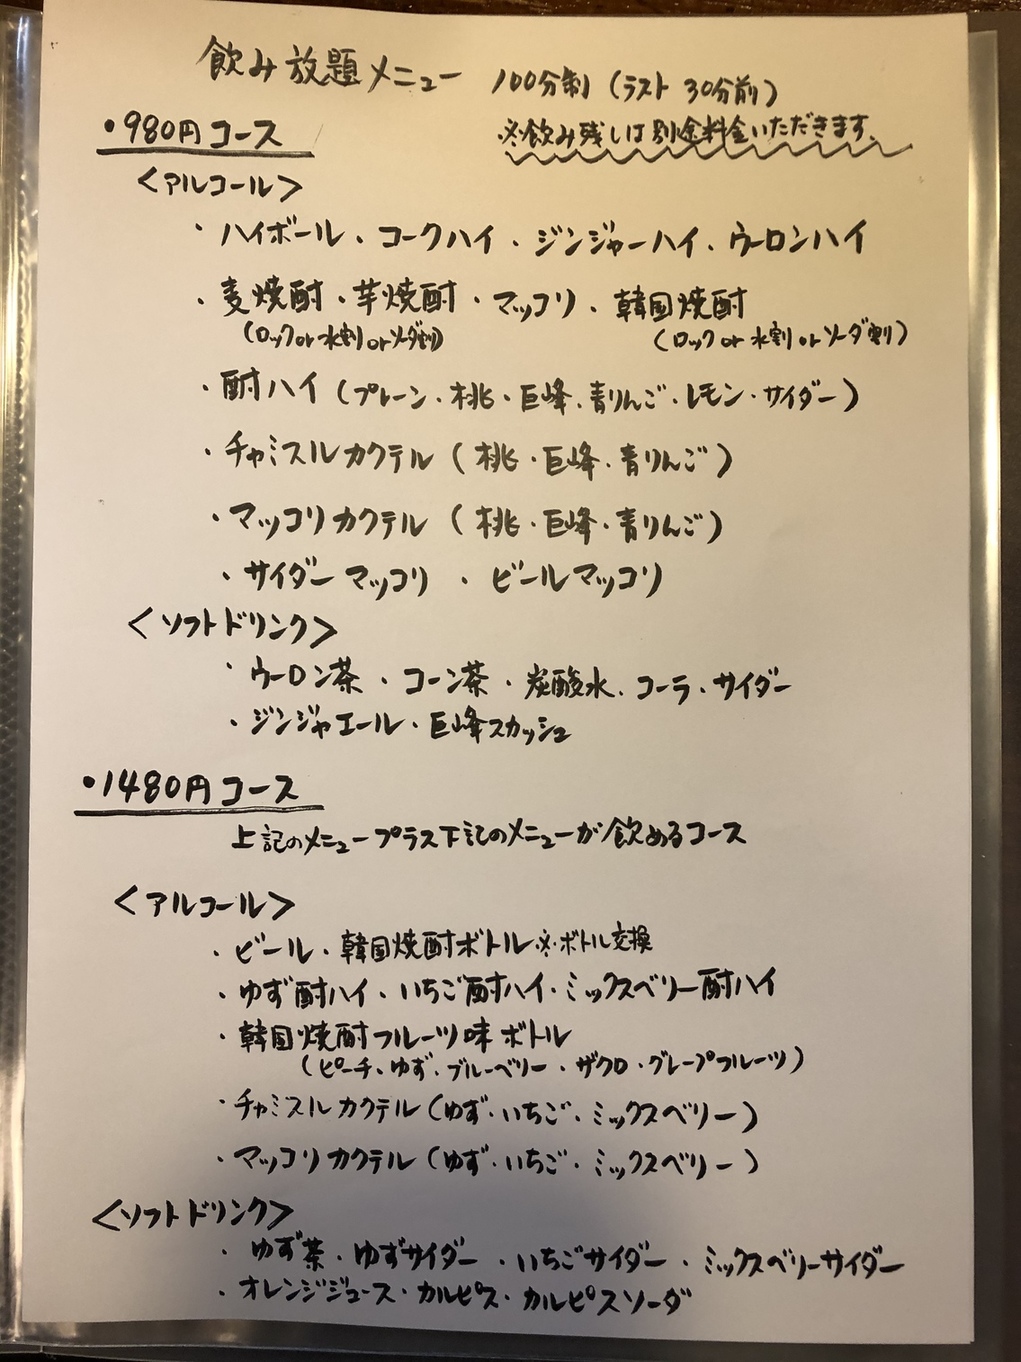 飲み放題メニュー 100分制(ラスト 30分前)
・980円コース ※飲み残しは別途料金いただきます。
<アルコール>
・ハイボール・コークハイ・ジンジャーハイ・ウーロンハイ
・麦焼酎・芋焼酎・マッコリ・韓国焼酎
(ロックor水割orソーダ割) (ロックor水割orソーダ割)
・酎ハイ(プレーン・桃・巨峰・青りんご・レモン・サイダー)
・チャミスルカクテル(桃・巨峰・青りんご)
・マッコリカクテル(桃・巨峰・青りんご)
・サイダーマッコリ ・ビールマッコリ
<ソフトドリンク>
・ウーロン茶・コーン茶・炭酸水・コーラ・サイダー
・ジンジャエール・巨峰スカッシュ
・1480円コース
上記のメニュープラス下記のメニューが飲めるコース
<アルコール>
・ビール・韓国焼酎ボトル※ボトル交換
・ゆず酎ハイ・いちご酎ハイ・ミックスベリー酎ハイ
・韓国焼酎フルーツ味ボトル
(ピーチ・ゆず・ブルーベリー・ザクロ・グレープフルーツ)
・チャミスルカクテル(ゆず・いちご・ミックスベリー)
・マッコリカクテル(ゆず・いちご・ミックスベリー)
<ソフトドリンク>
・ゆず茶・ゆずサイダー・いちごサイダー・ミックスベリーサイダー
・オレンジジュース・カルピス・カルピスソーダ